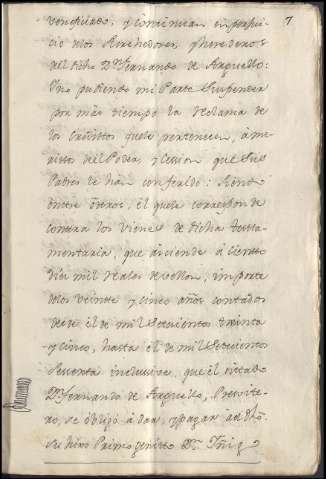 7
y continuan en perjui-
cio de los Acrehedores, y herederos
del dicho Dn. Fernando de Arguello:
No pudiendo mi Parte suspender
por más tiempo la reclama de
los Creditos que le pertenecen, á me-
ritos del Poder, y Cesion que sus
Padres le han conferido: siendo
entre otros, el que le corresponde
contra los vienes de dicha testa-
mentaria, que asciende á ciento
diez mil reales de vellon, importe
de los veinte y cinco años contados
desde el de mil setecientos treinta
y cinco, hasta el de mil setecientos
sesenta inclusive, que el citado
Dn. Fernando de Arguello, Presvite-
ro, se obligó á dar, y pagar á dho.
su hijo Primogenito Dn. Iñigo